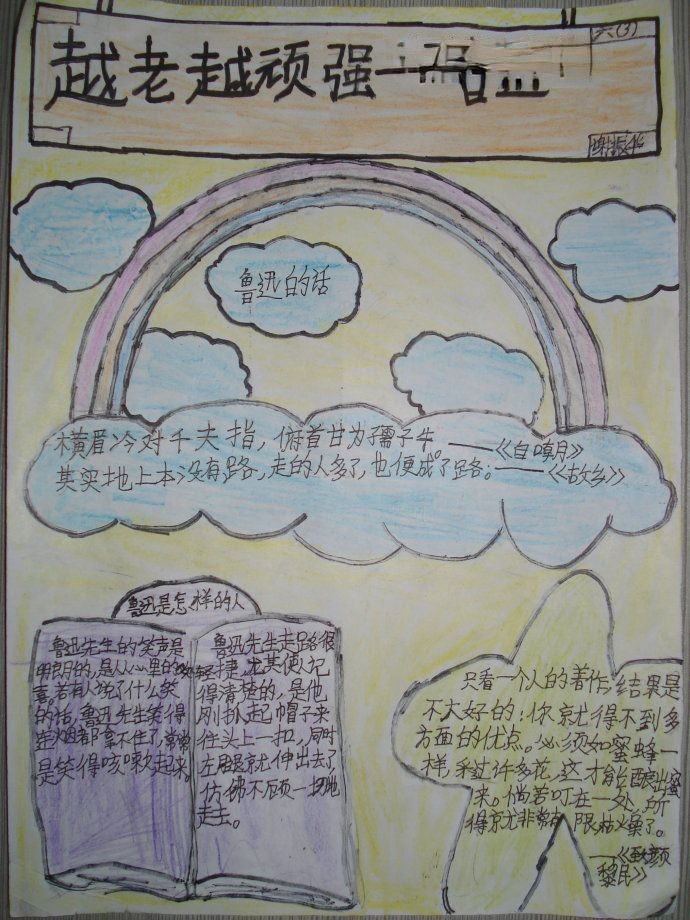 越老越顽强一
六(3)
鲁迅的话
横眉冷对千夫指，俯首甘为孺子牛——《自嘲》
其实地上本没有路，走的人多了，也便成了路。——《故乡》
鲁迅是怎样的人
鲁迅先生的笑声是
明朗的，是从心里的欢
喜。若有人说了什么笑
的话，鲁迅先生笑得
连烟都拿不住了，常常
是笑得咳嗽起来。
鲁迅先生走路很
轻捷，尤其使人记
得清楚的，是他
刚抓起帽子来
往头上一扣，同时
左腿就伸出去了，
仿佛不顾一切地
走去。
只看一个人的著作，结果是
不大好的：你就得不到多
方面的优点。必须如蜜蜂一
样，采过许多花，这才能酿出蜜
来。倘若叮在一处，所
得就非常有限枯燥了。
——《致颜
黎民》